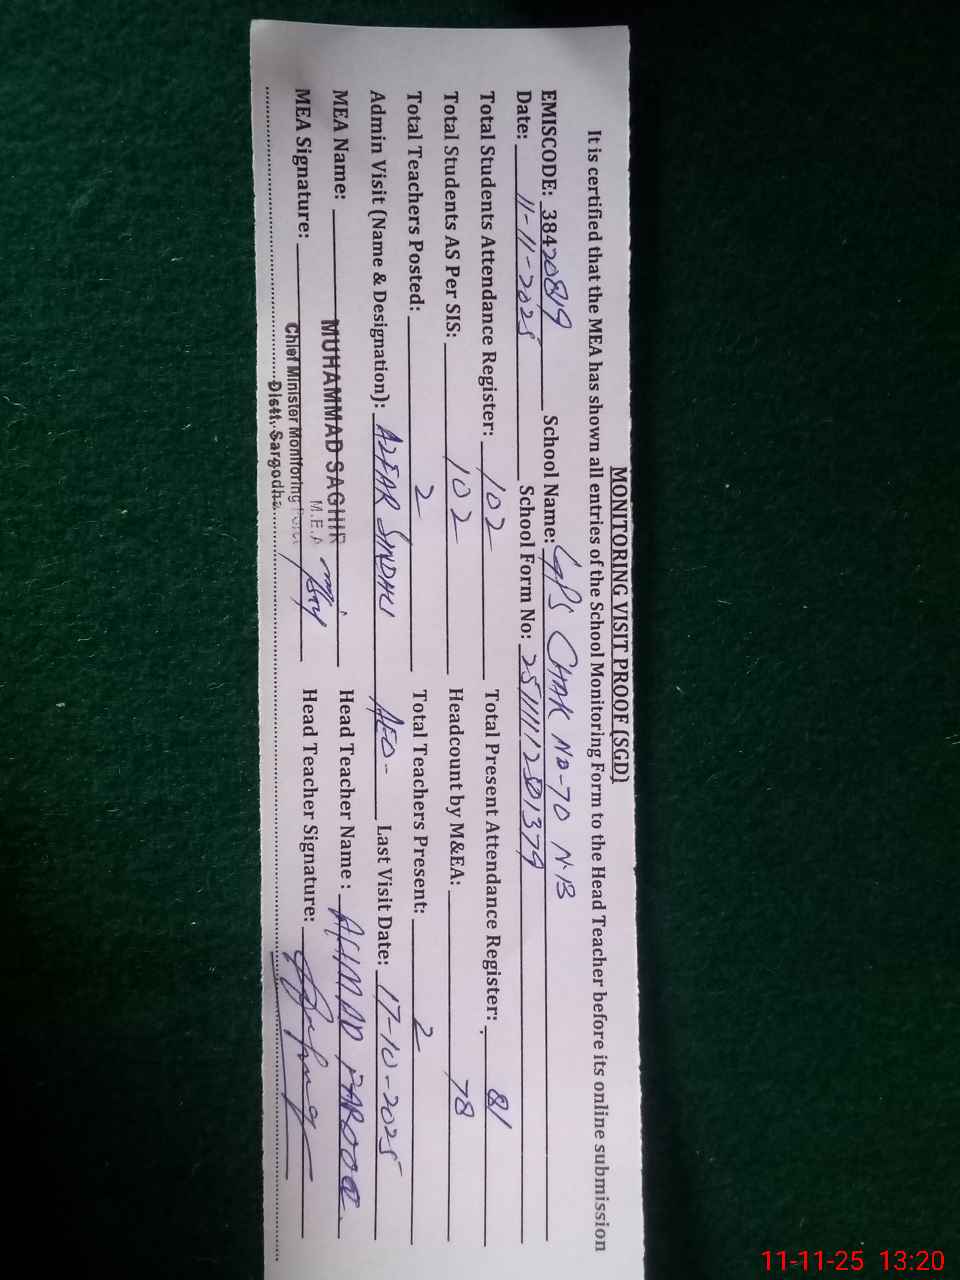 MONITORING VISIT PROOF (SGD)
It is certified that the MEA has shown all entries of the School Monitoring Form to the Head Teacher before its online submission
EMISCODE: 38420819 School Name: GPS CHAK NO-70 N-B
Date: 11-11-2025 School Form No: 2511112501379
Total Students Attendance Register: 102 Total Present Attendance Register: 81
Total Students AS Per SIS: 102 Headcount by M&EA: 78
Total Teachers Posted: 2 Total Teachers Present: 2
Admin Visit (Name & Designation): AZFAR SINDHU AEO- Last Visit Date: 17-10-2025
MEA Name: MUHAMMAD SAGHIR Head Teacher Name : AHMAD FAROOQ.
M.E.A
MEA Signature: Head Teacher Signature:
Chief Minister Monitoring Force
Distt. Sargodha
11-11-25 13:20